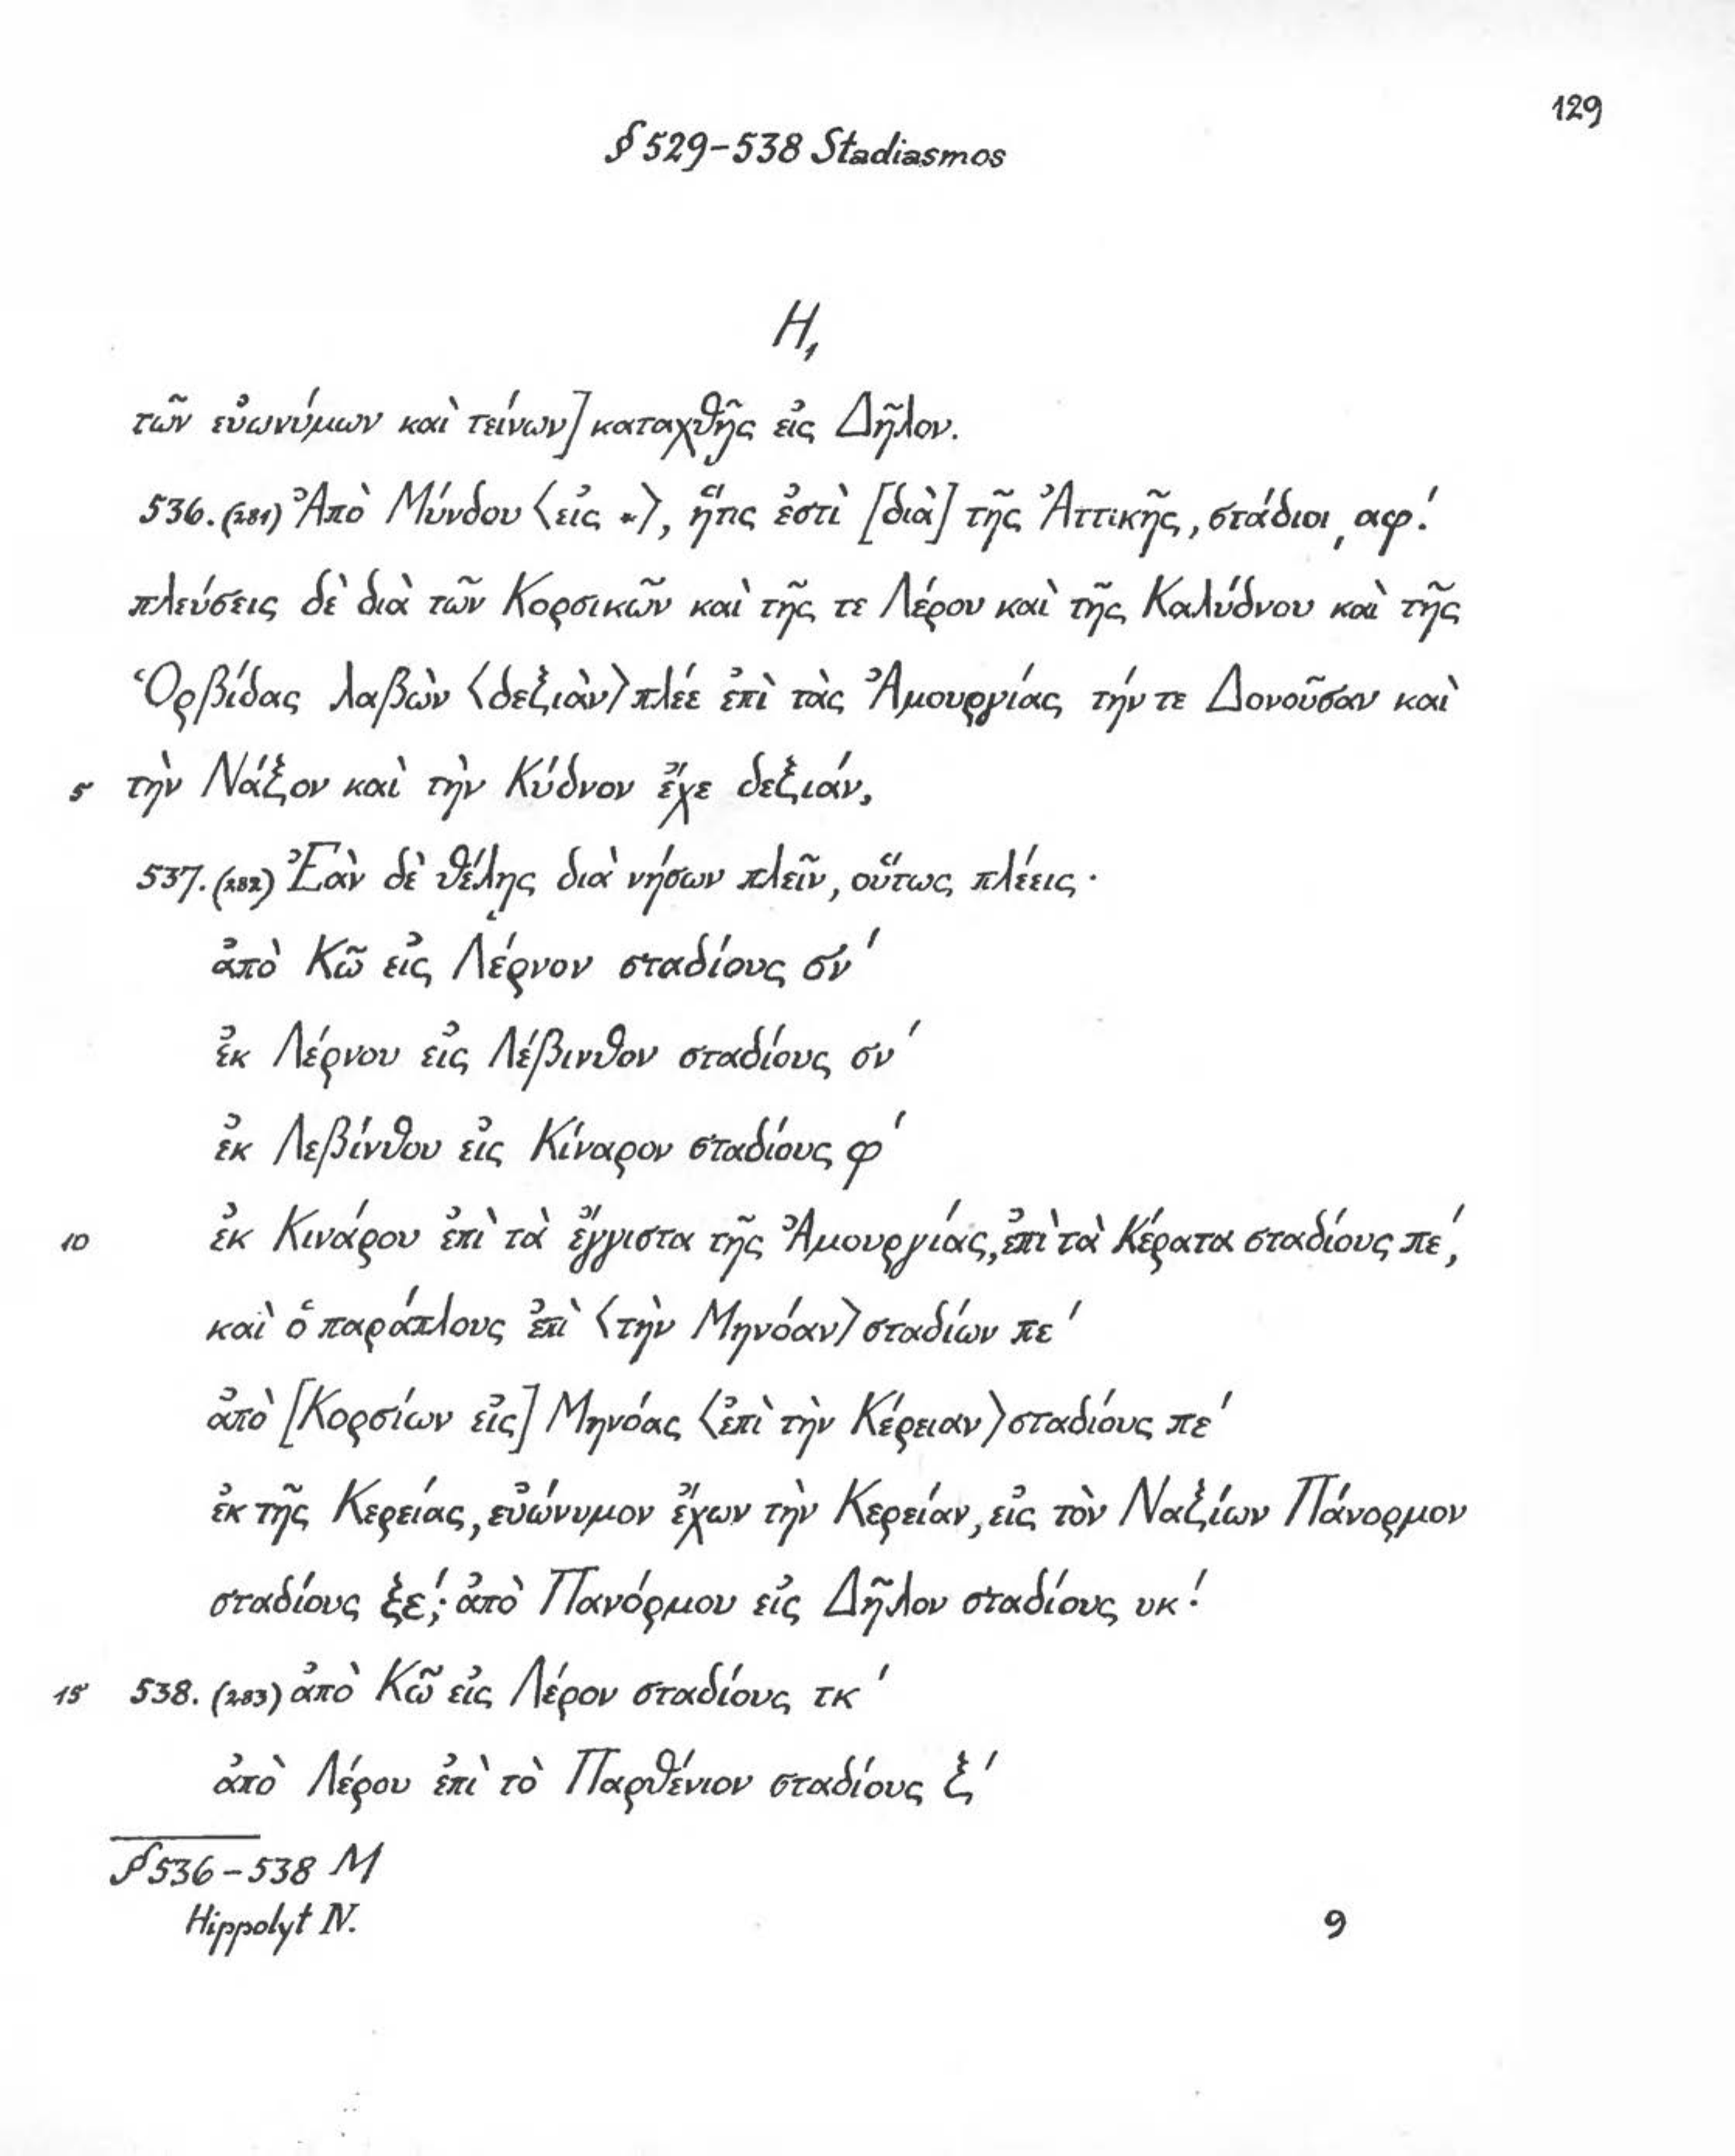 129
§ 529-538 Stadiasmos
H₁
τῶν εὐωνύμων καὶ τείνων] καταχθῇς εἰς Δῆλον.
536. (281) Ἀπὸ Μύνδου ⟨εἰς *⟩, ἥτις ἐστὶ [διὰ] τῆς Ἀττικῆς, στάδιοι ͵αφʹ.
πλεύσεις δὲ διὰ τῶν Κορσικῶν καὶ τῆς τε Λέρου καὶ τῆς Καλύδνου καὶ τῆς
Ὁρβίδας λαβὼν ⟨δεξιὰν⟩ πλέε ἐπὶ τὰς Ἀμουργίας τήν τε Δονοῦσαν καὶ
5 τὴν Νάξον καὶ τὴν Κύδνον ἔχε δεξιάν,
537. (282) Ἐὰν δὲ θέλῃς διὰ νήσων πλεῖν, οὕτως πλέεις·
ἀπὸ Κῶ εἰς Λέρνον σταδίους σνʹ
ἐκ Λέρνου εἰς Λέβινθον σταδίους σνʹ
ἐκ Λεβίνθου εἰς Κίναρον σταδίους φʹ
10 ἐκ Κινάρου ἐπὶ τὰ ἔγγιστα τῆς Ἀμουργίας, ἐπὶ τὰ Κέρατα σταδίους πεʹ,
καὶ ὁ παράπλους ἐπὶ ⟨τὴν Μηνόαν⟩ σταδίων πεʹ
ἀπὸ [Κορσίων εἰς] Μηνόας ⟨ἐπὶ τὴν Κέρειαν⟩ σταδίους πεʹ
ἐκ τῆς Κερείας, εὐώνυμον ἔχων τὴν Κερείαν, εἰς τὸν Ναξίων Πάνορμον
σταδίους ξεʹ; ἀπὸ Πανόρμου εἰς Δῆλον σταδίους υκʹ.
15 538. (283) ἀπὸ Κῶ εἰς Λέρον σταδίους τκʹ
ἀπὸ Λέρου ἐπὶ τὸ Παρθένιον σταδίους ξʹ
§ 536-538 M
Hippolyt IV.
9